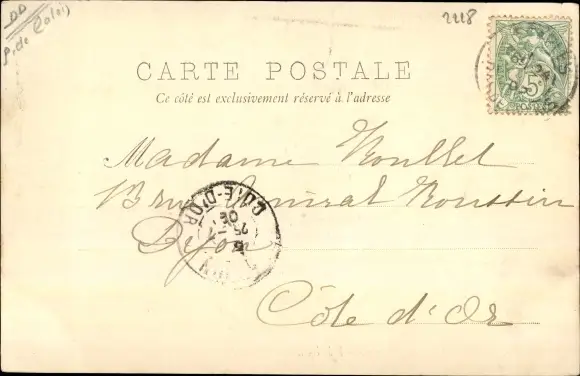 DD
p. de Calais
2228
CARTE POSTALE
Ce côté est exclusivement réservé à l'adresse
5c
POSTES
Madame Noullet
13 rue Amiral Roussin
COTE-D'OR
25
Dijon
Côte d'Or